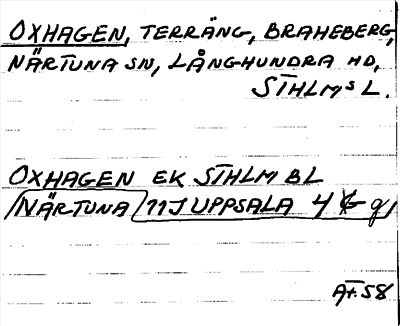 OXHAGEN, TERRÄNG, BRAHEBERG,
NÄRTUNA SN, LÅNGHUNDRA HD,
STHLMS L.
OXHAGEN EK STHLM BL
NÄRTUNA 11J UPPSALA 4 g
ÄT.58